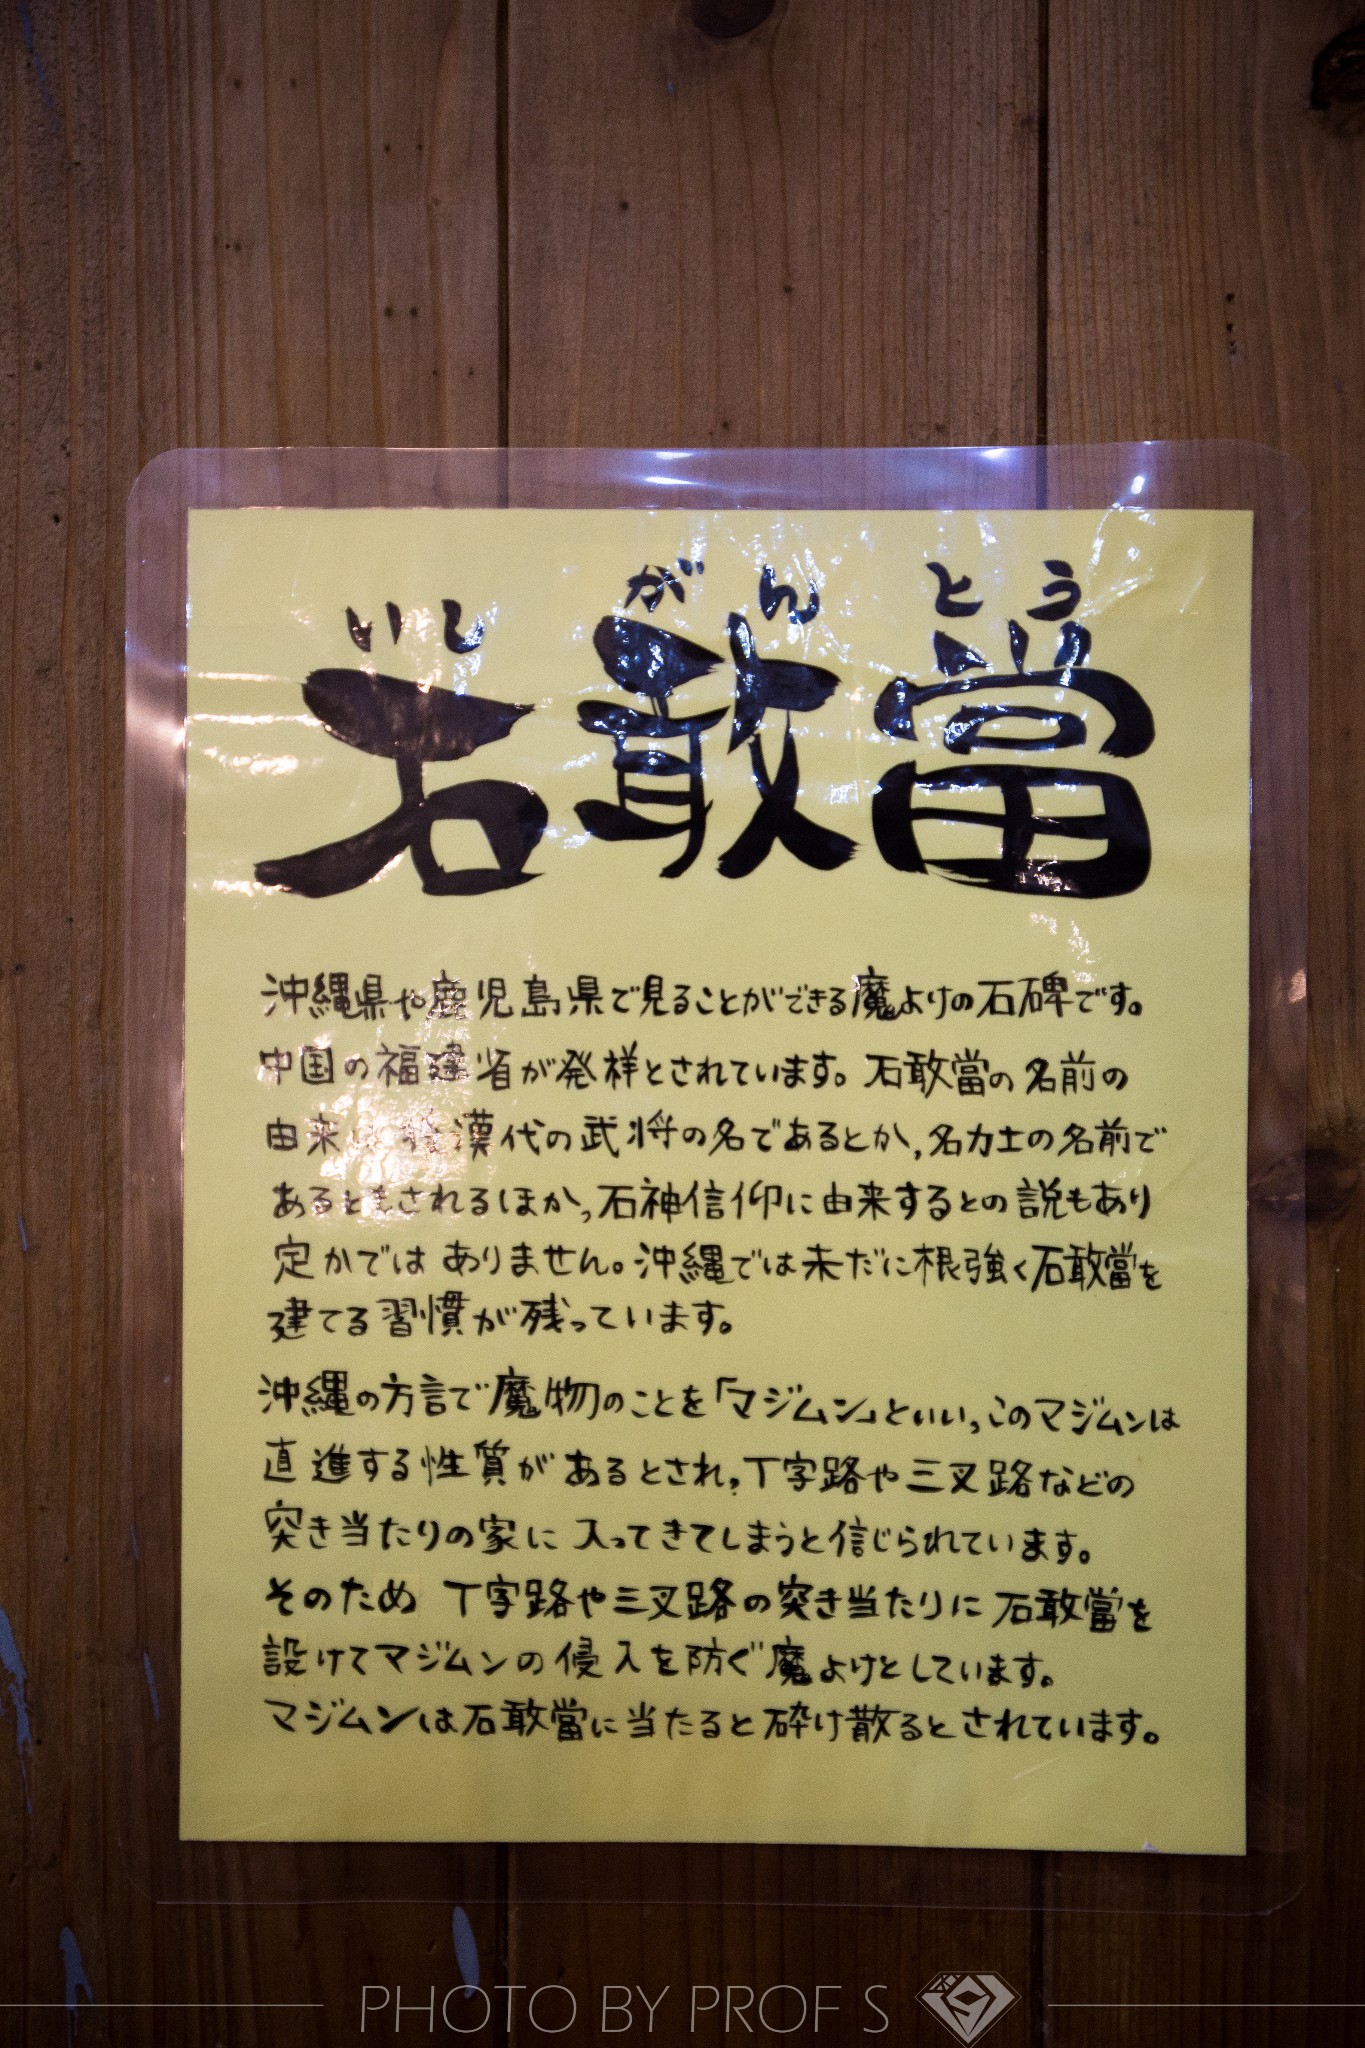 いし がん とう
石敢當
沖縄県や鹿児島県で見ることができる魔よけの石碑です。
中国の福建省が発祥とされています。石敢當の名前の
由来は後漢代の武将の名であるとか、名力士の名前で
あるともされるほか、石神信仰に由来するとの説もあり
定かではありません。沖縄では未だに根強く石敢當を
建てる習慣が残っています。
沖縄の方言で魔物のことを「マジムン」といい、このマジムンは
直進する性質があるとされ、丁字路や三叉路などの
突き当たりの家に入ってきてしまうと信じられています。
そのため丁字路や三叉路の突き当たりに石敢當を
設けてマジムンの侵入を防ぐ魔よけとしています。
マジムンは石敢當に当たると砕け散るとされています。
PHOTO BY PROF S